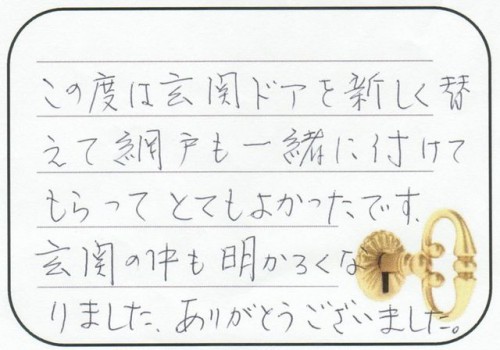 この度は玄関ドアを新しく替
えて網戸も一緒に付けて
もらってとてもよかったです、
玄関の中も明かるくな
りました、ありがとうございました。